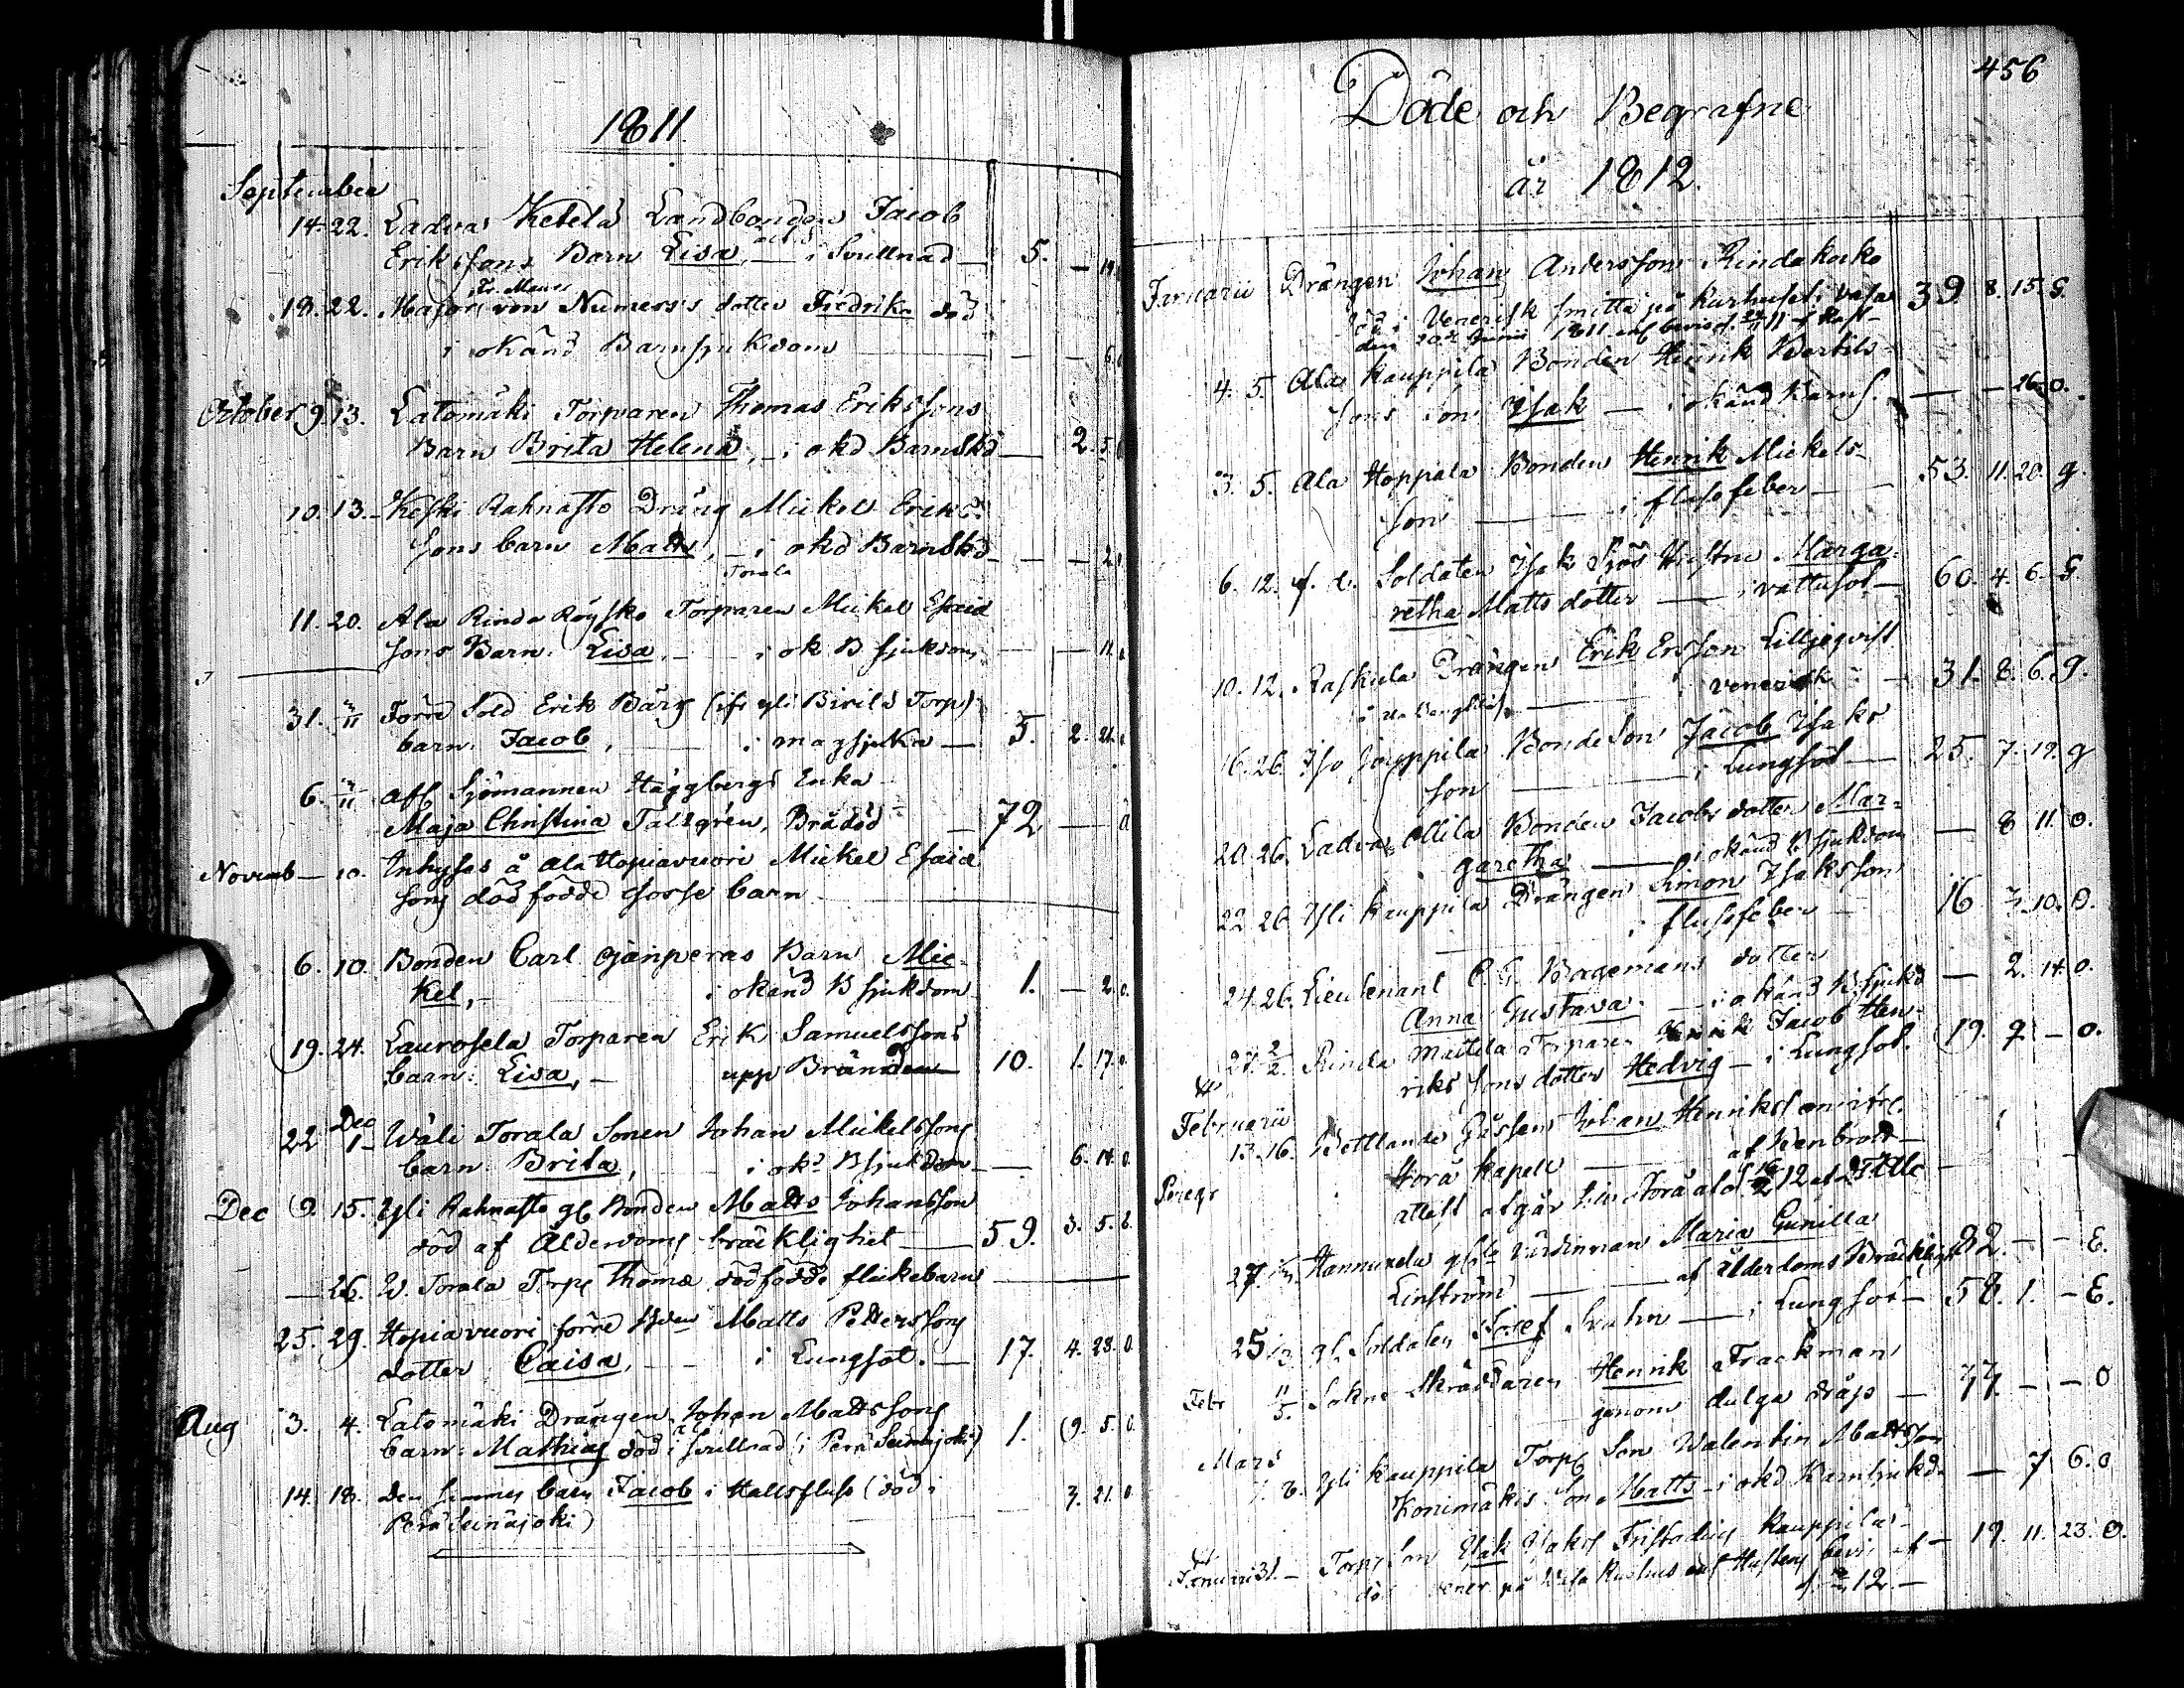 1811.
September
14. 22. Ladva Ketela Landbonden Jacob
Erikssons Barn Lisa, — i Svullnad — 5. — 19.
18. 22. Major von Numers's dotter Fredrika död
i okänd Barnsjukdom — — 6.
October 9. 13. Latomäki Torparen Thomas Erikssons
Barn Brita Helena, — i okd Barnskd — 2. 5
10. 13. Keski Rahnasto Dräng Mickel Eriks
sons barn Matts, — i okd Barnskd — — 2.
Torala
11. 20. Ala Rinda Röysko Torparen Mickel Esaid
sons Barn Lisa, — i ok B sjukdom — — 11.
31. Förre Sold Erik Bärg (ifr yli Birila Torp)
barn. Jacob, — i magsjuka — 5. 2. 21.
6. Afl Sjömannen Häggbergs Enka
Maja Christina Talsgrén, Brådöd — 72. —
Novemb — 10. Inhyses å Ala Hopiavuori Mickel Esaid
sons dödfödde Gosse barn
6. 10. Bonden Carl Gjänperas Barn Mic-
kel, — i okänd B sjukdom 1. — 2. 0.
19. 24. Laurosela Torparen Erik Samuelssons
barn: Lisa, — upp Bränden 10. 1. 17. 0
22 Dec 1 — Wäli Torala Sonen Johan Mickelssons
barn Brita, — i okd B sjukdom — 6. 14. 0
Dec 9. 15. Yli Rahnasto gl Bonden Matts Johansson
död af Ålderdoms bräcklighet — 59. 3. 5. E.
— 26. W. Torala Torp Thomæ dödfödde flickebarn —
25. 29. Hopiavuori förre Bden Matts Pettersons
dotter Caisa, — i Lungsot. — 17. 4. 28. 0
Aug 3. 4. Latomäki Drängen Johan Mattssons
barn: Mathias död i Svullnad (i Perä Seinäjoki) 1. 9. 5. 0
14. 18. Den sammes barn Jacob i Hallsfluss (död i — 3. 21. 0
Perä Seinäjoki)
456
Döde och Begrafne
år 1812.
Januarii Drängen Johan Andersson Rindakoko 39. 8. 15. G.
död i Venerisk smitta på Kurhuset i Vasa
den 20de Junii 1811 enl bevis af
4. 5. Ala Kauppila Bonden Henrik Bertils-
sons Son Isak — i okänd Barns. — — 26. 0.
3. 5. Ala Hoppala Bonden Henrik Mickels- 53. 11. 20. g.
son — i flussfeber —
6. 12. f. d. Soldaten Isak Sjös Hustru Marga- 60. 4. 6. G.
retha Matts dotter — i vattusot —
10. 12. Raskula Drängen Erik Ersson Lilljeqvist 31. 8. 6. G.
— i venerisk —
16. 26. Iso Jouppila Bonde Son Jacob Isaks 25. 7. 19. g
son — i Lungsot —
20. 26. Ladva Ollila Bonden Jacobs dotter Mar-
garetha — i okänd B sjukdom — 8 11. 0.
22 26. Yli Kauppila Drängen Simon Isaksson
i flussfeber — 16 7. 10. 0.
24. 26. Lieutenant C. G. Bagemans dotter
Anna Gustava. — i okänd B. sjukd — 2. 14. 0.
27. 2/2 Rinda Mattila Torparen Jacob Hen-
riks sons dotter Hedvig — i Lungsot. 19. 9 — 0.
Februarii
13. 16. Wettlande Gossen Johan Henrikss
Storå Kapell — af Benbrott —
Peregr attest afgår till Storå
27. 1/3 Hannuxela gl värdinnan Maria Gunilla
Linström — af Ålderdoms Bräcklighet 82. — — E.
25 1/3 gl. Soldaten Josef Svahn — i Lungsot — 58. 1. — E.
Febr 11/5. Sokne Skräddaren Henrik Frackman
genom dulga dråp — 77. — — 0
Mars
1. 8. Yli Kauppila Torp Son Valentin Mattsson
Konimäkis Son Matts — i okd Barnsjukd. — 7 6. 0
Januari 31. — Torp Son Isak Isaks Fristadius Kauppila —
död vener. på Wasa Kurhus enl bevis af — 19. 11. 23. 0.
12. —